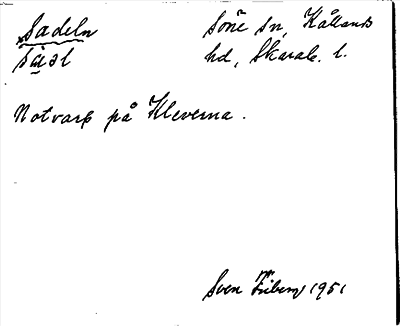 Sadeln
Sone sn, Kållands
hd, Skarab. l.
Notvarp på Kleverna.
Sven Friberg 1951